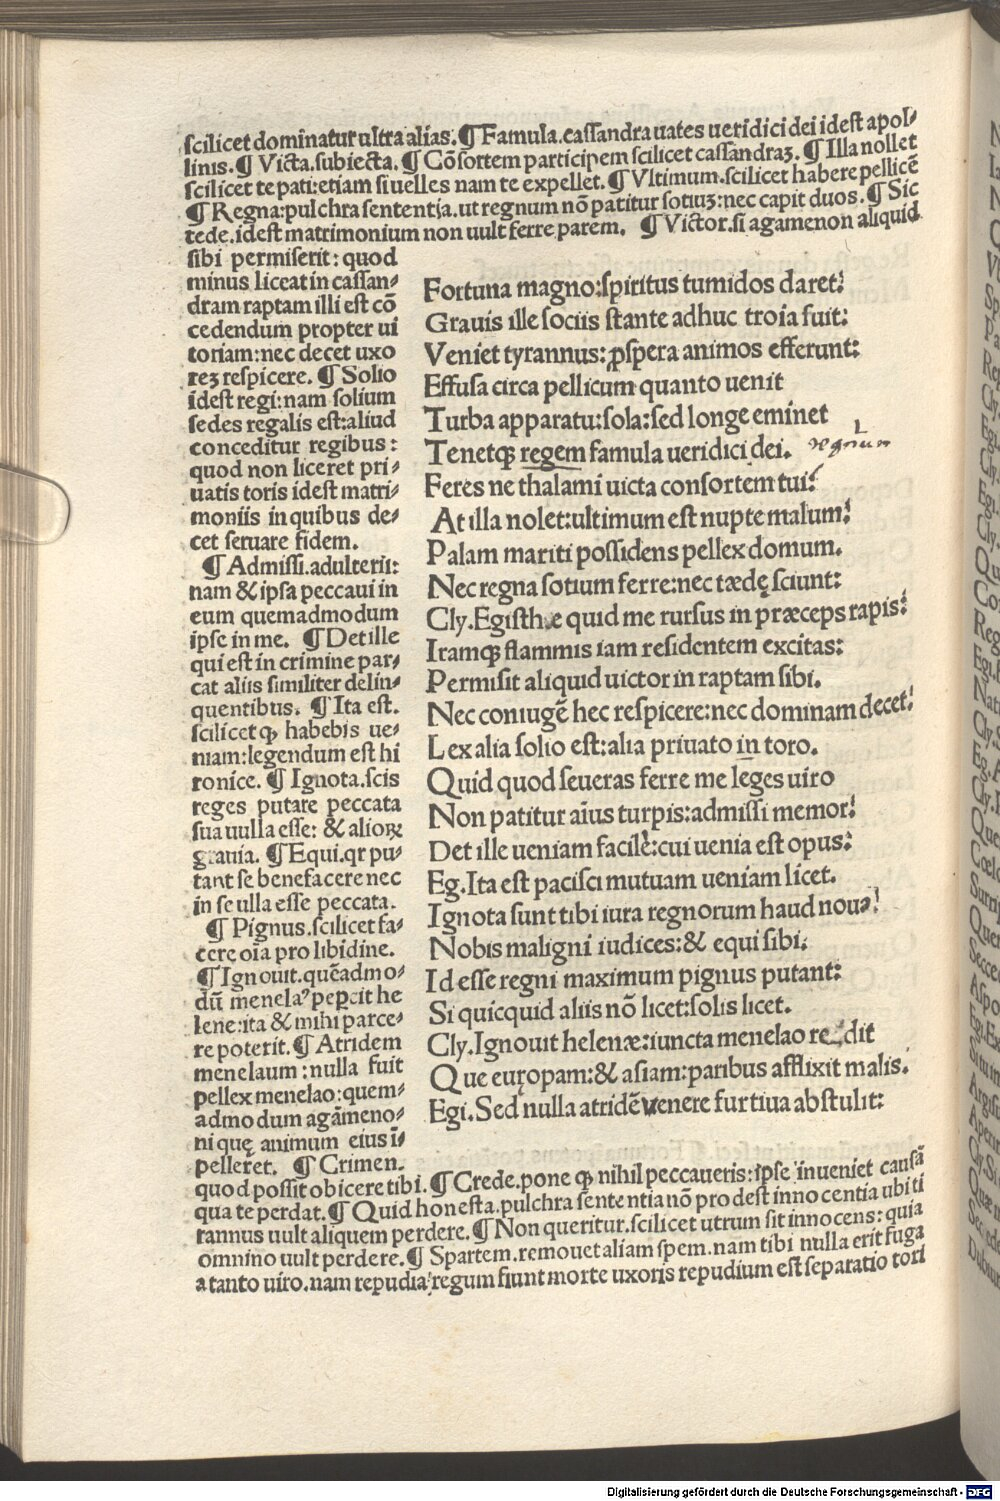 ſcilicet dominatur ultra alias. ¶ Famula. caſſandra uates ueridici dei ideſt apol⸗
linis. ¶ Victa. ſubiecta. ¶ Cōſortem participem ſcilicet caſſandraꝫ. ¶ Illa nollet
ſcilicet te pati: etiam ſi uelles nam te expellet. ¶ Vltimum. ſcilicet habere pellicē
¶ Regna: pulchra ſententia. ut regnum nō patitur ſotiuꝫ: nec capit duos. ¶ Sic
tede. ideſt matrimonium non uult ferre parem. ¶ Victor. ſi agamenon aliquid
ſibi permiſerit: quod
minus liceat in caſſan⸗
dram raptam illi eſt cō
cedendum propter ui
toriam: nec decet uxo
reꝫ reſpicere. ¶ Solio
ideſt regi: nam ſolium
ſedes regalis eſt: aliud
conceditur regibus:
quod non liceret pri⸗
uatis toris ideſt matri⸗
moniis in quibus de⸗
cet ſeruare fidem.
¶ Admiſſi. adulterii:
nam & ipſa peccaui in
eum quemadmodum
ipſe in me. ¶ Det ille
qui eſt in crimine par⸗
cat aliis ſimiliter delin⸗
quentibus. ¶ Ita eſt.
ſcilicet ꝙ habebis ue⸗
niam: legendum eſt hi
ronice. ¶ Ignota. ſcis
reges putare peccata
ſua uulla eſſe: & alioꝝ
grauia. ¶ Equi. qr pu⸗
tant ſe benefacere nec
in ſe ulla eſſe peccata.
¶ Pignus. ſcilicet fa⸗
cere oīa pro libidine.
¶ Ignouit. quēadmo⸗
dū menelaꝰ pepcit he
lene: ita & mihi parce⸗
re poterit. ¶ Atridem
menelaum: nulla fuit
pellex menelao: quem⸗
admodum agāmeno⸗
ni quę animum eius ī⸗
pelleret. ¶ Crimen.
Fortuna magno: ſpiritus tumidos daret?
Grauis ille ſociis ſtante adhuc troia fuit:
Veniet tyrannus: ꝓſpera animos efferunt:
Effuſa circa pellicum quanto uenit
Turba apparatu: ſola: ſed longe eminet
Tenetqꝫ regem famula ueridici dei. regnum
Feres ne thalami uicta conſortem tui?
At illa nolet: ultimum eſt nupte malum?
Palam mariti poſſidens pellex domum.
Nec regna ſotium ferre: nec tædę ſciunt:
Cly. Egiſthæ quid me rurſus in præceps rapis?
Iramqꝫ flammis iam reſidentem excitas:
Permiſit aliquid uictor in raptam ſibi.
Nec coniugē hec reſpicere: nec dominam decet?
Lex alia ſolio eſt: alia priuato in toro.
Quid quod ſeueras ferre me leges uiro
Non patitur aīus turpis: admiſſi memor?
Det ille ueniam facile: cui uenia eſt opus:
Eg. Ita eſt paciſci mutuam ueniam licet.
Ignota ſunt tibi iura regnorum haud noua?
Nobis maligni iudices: & equi ſibi.
Id eſſe regni maximum pignus putant:
Si quicquid aliis nō licet: ſolis licet.
Cly. Ignouit helenæ: iuncta menelao redit
Que europam: & aſiam: paribus afflixit malis.
Egi. Sed nulla atridē venere furtiua abſtulit:
quod poſſit obicere tibi. ¶ Crede. pone ꝙ nihil peccaueris: ipſe inueniet cauſā
qua te perdat. ¶ Quid honeſta. pulchra ſententia nō prodeſt innocentia ubi ti
rannus uult aliquem perdere. ¶ Non queritur. ſcilicet utrum ſit innocens: quia
omnino uult perdere. ¶ Spartem. remouet aliam ſpem. nam tibi nulla erit fuga
a tanto uiro. nam repudia regum fiunt morte uxoris repudium eſt ſeparatio tori
Digitalisierung gefördert durch die Deutsche Forschungsgemeinschaft - DFG